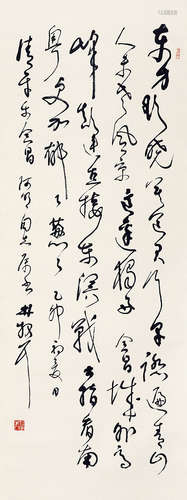 东方欲晓莫道君行早踏遍青山
人未老风景这边独好会昌城外高
峰颠连直接东溟战士指看南
粤更加郁々葱々 乙卯初夏日
清平乐会昌 属书 林散耳